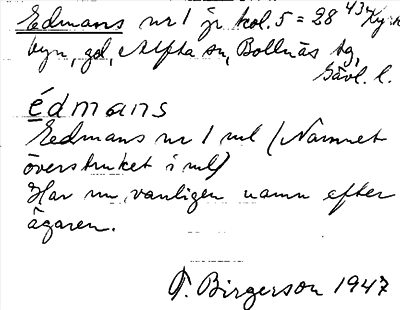 Edmans nr 1 jr kol. 5 = 28 43 4 Kyrk
byn, gd, Alfta sn, Bollnäs tg,
Gävl. l.
édmans
Eedmans nr 1 ml (Namnet
överstruket i ml)
Har nu, vanligen namn efter
ägaren.
T. Birgerson 1947